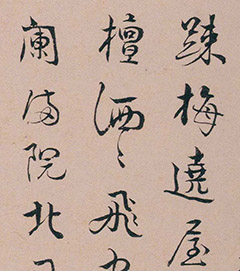 踈梅遶屋
檀洒〻飛
闌滿院北